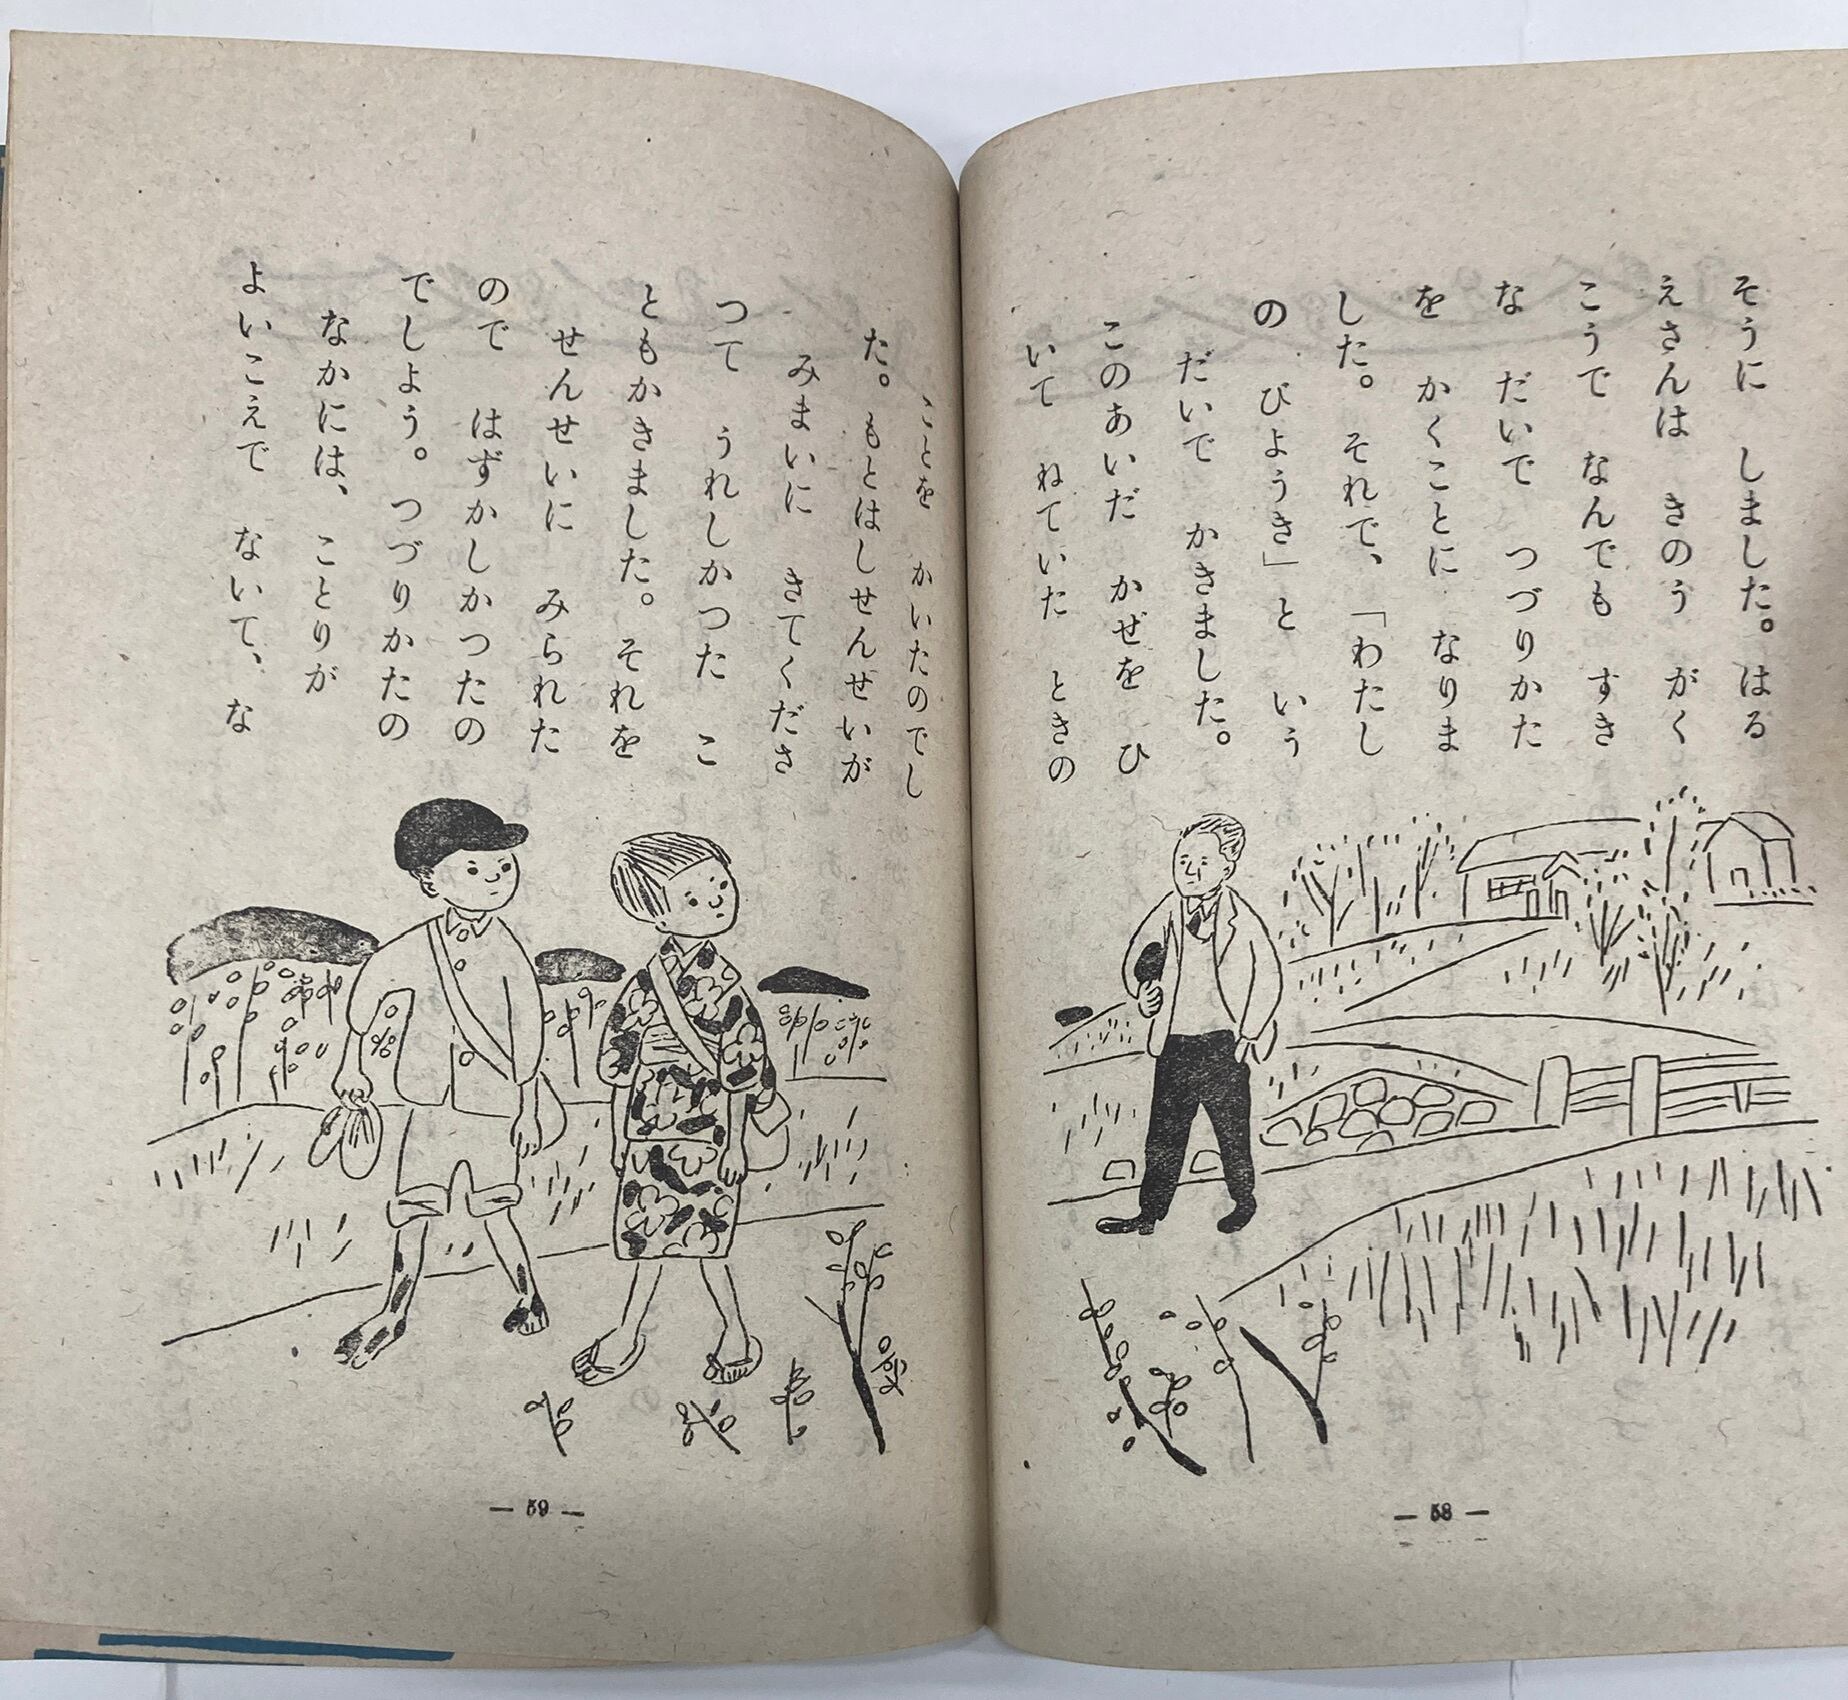 そうに しました。はる
えさんは きのう がく
こうで なんでも すき
な だいで つづりかた
を かくことに なりま
した。それで、「わたし
の びようき」と いう
だいで かきました。
このあいだ かぜを ひ
いて ねていた ときの
— 58 —
ことを かいたのでし
た。もとはしせんせいが
みまいに きてくださ
つて うれしかつた こ
ともかきました。それを
せんせいに みられた
ので はずかしかつたの
でしよう。つづりかたの
なかには、ことりが
よいこえで ないて、な
— 59 —